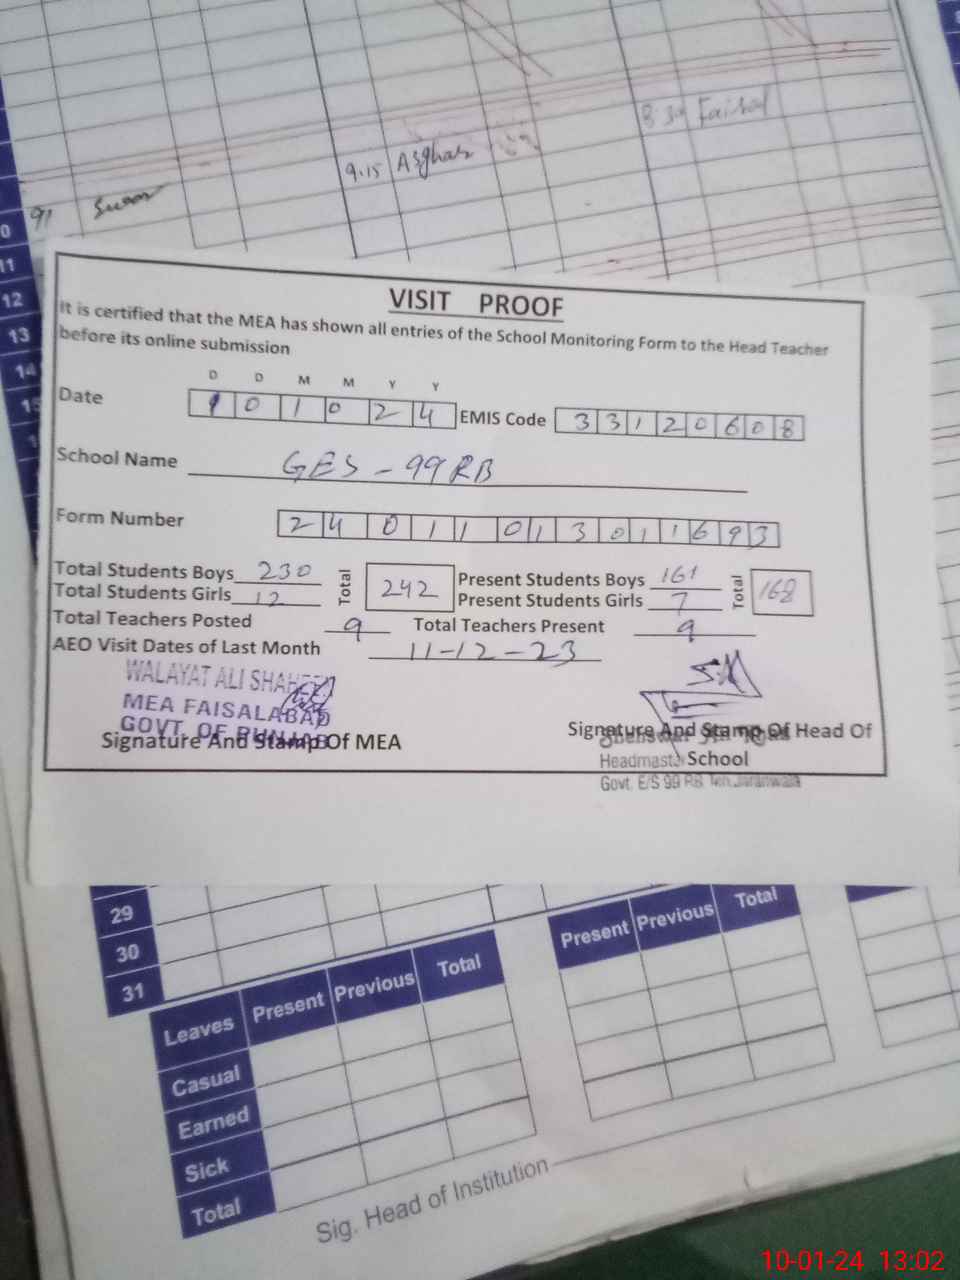 8 30 Faisal
9.15 Asghar
91
10
11
12
13
14
15
VISIT PROOF
It is certified that the MEA has shown all entries of the School Monitoring Form to the Head Teacher
before its online submission
D D M M Y Y
Date 1 0 1 0 2 4 EMIS Code 3 3 1 2 0 6 0 8
School Name GES - 99 RB
Form Number 2 4 0 1 1 0 1 3 0 1 1 6 9 3
Total Students Boys 230 Total 242 Present Students Boys 161 Total 168
Total Students Girls 12 Present Students Girls 7
Total Teachers Posted 9 Total Teachers Present 9
AEO Visit Dates of Last Month 11-12-23
WALAYAT ALI SHAHEEN
MEA FAISALABAD
GOVT. OF PUNJAB
Signature And Stamp Of MEA
Signature And Stamp Of Head Of
School
Headmaster
Govt. E/S 99 RB Teh. Jaranwala
29
30
31
Leaves Present Previous Total
Casual
Earned
Sick
Total
Present Previous Total
Sig. Head of Institution
10-01-24 13:02